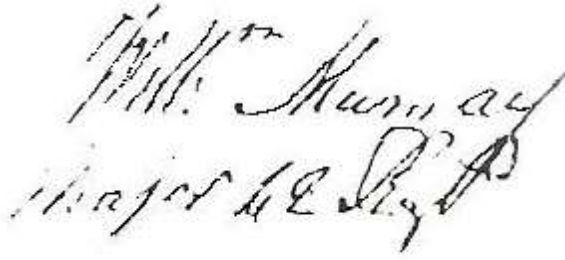 Will.m Murray
Major 42 Regt